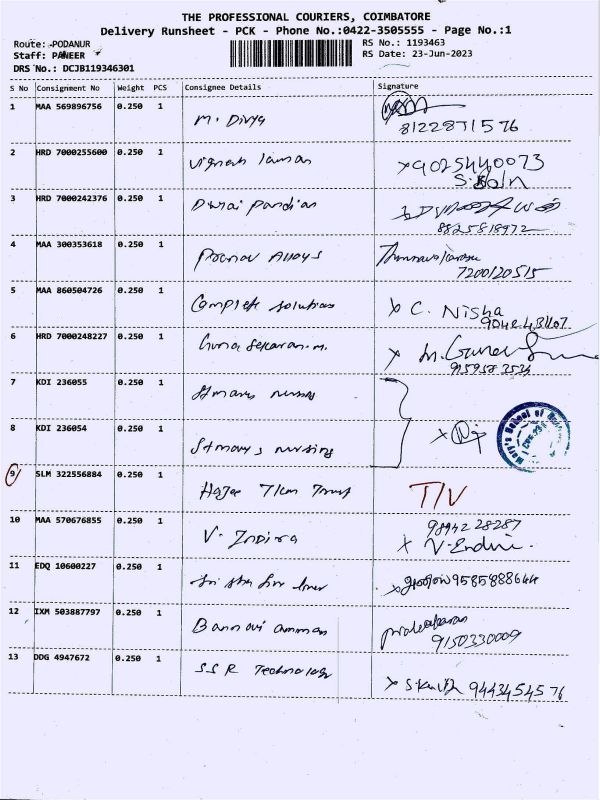 THE PROFESSIONAL COURIERS, COIMBATORE
Delivery Runsheet - PCK - Phone No.:0422-3505555 - Page No.:1
Route: PODANUR RS No.: 1193463
Staff: PANEER RS Date: 23-Jun-2023
DRS No.: DCJB119346301
S No Consignment No Weight PCS Consignee Details Signature
1 MAA 569896756 0.250 1 M. Divya
8122871576
2 HRD 7000255600 0.250 1 Vignesh x9025440073
3 HRD 7000242376 0.250 1 Durai Pandian
8825818972
4 MAA 300353618 0.250 1 Pranav Alloys
7200120515
5 MAA 860504726 0.250 1 Complete solutions x C. Nisha
6 HRD 7000248227 0.250 1 Guna Sekaran. M. x M. Guna
7 KDI 236055 0.250 1 St marys nursing
8 KDI 236054 0.250 1 St marys nursing x
Mary's School of
9 SLM 322556884 0.250 1 Hajee Trust T/V
10 MAA 570676855 0.250 1 V. Indira 9894228287
x V. Endira.
11 EDQ 10600227 0.250 1 Sri 9585888644
12 IXM 503887797 0.250 1 Bannari amman
9150330009
13 DDG 4947672 0.250 1 SSR Technology
x 9443454576